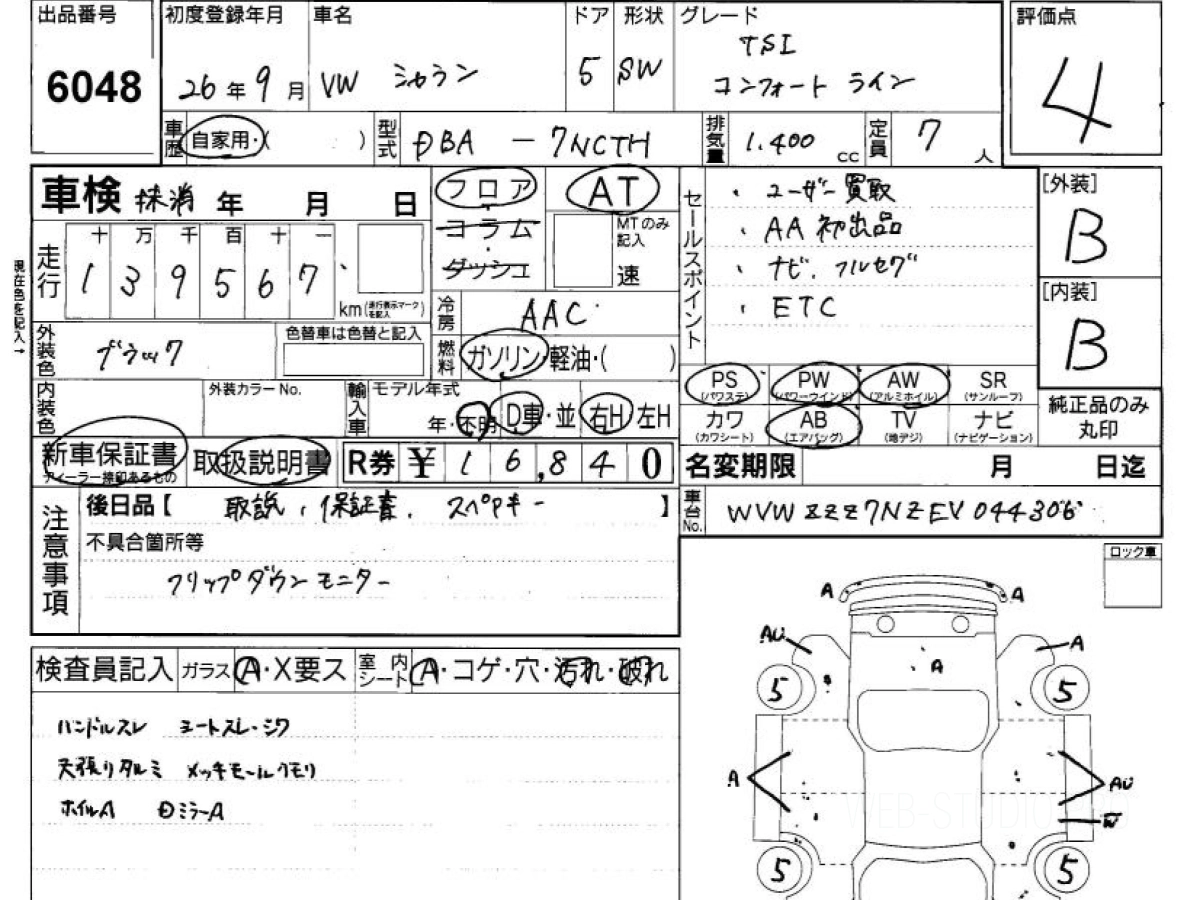 出品番号 初度登録年月 車名 ドア 形状 グレード 評価点
6048 26年9月 VW シャラン 5 SW TSI
コンフォートライン
4
車歴 自家用・( ) 型式 DBA-7NCTH 排気量 1.400cc 定員 7人
車検 抹消 年 月 日
フロア AT
コラム
ダッシュ
MTのみ記入
速
セールスポイント
・ユーザー買取
・AA初出品
・ナビ.フルセグ
・ETC
[外装]
B
[内装]
B
現在色を記入→
走行 十 万 千 百 十 一
139567
km(走行表示マークを記入)
冷房 AAC
外装色 ブラック 色替車は色替と記入
燃料 ガソリン・軽油・( )
内装色 外装カラーNo. 輸入車 モデル年式
年・不明 D車・並 右H 左H
PS(パワステ) PW(パワーウインド) AW(アルミホイル) SR(サンルーフ)
カワ(カワシート) AB(エアバッグ) TV(地デジ) ナビ(ナビゲーション)
純正品のみ丸印
新車保証書 ディーラー捺印あるもの 取扱説明書 R券 ¥16,840
名変期限 月 日迄
車台No. WVWZZZ7NZEV044306
注意事項
後日品【 取説,保証書. スペアキー 】
不具合箇所等
フリップダウンモニター
ロック車
検査員記入 ガラス A・X要ス 室内シート A・コゲ・穴・汚れ・破れ
ハンドルスレ シートスレ・シワ
天張りタルミ メッキモールクモリ
ホイルA ミラーA
A A
AU A A
5 5
A AU
W
WEB-STUDIO
5 5